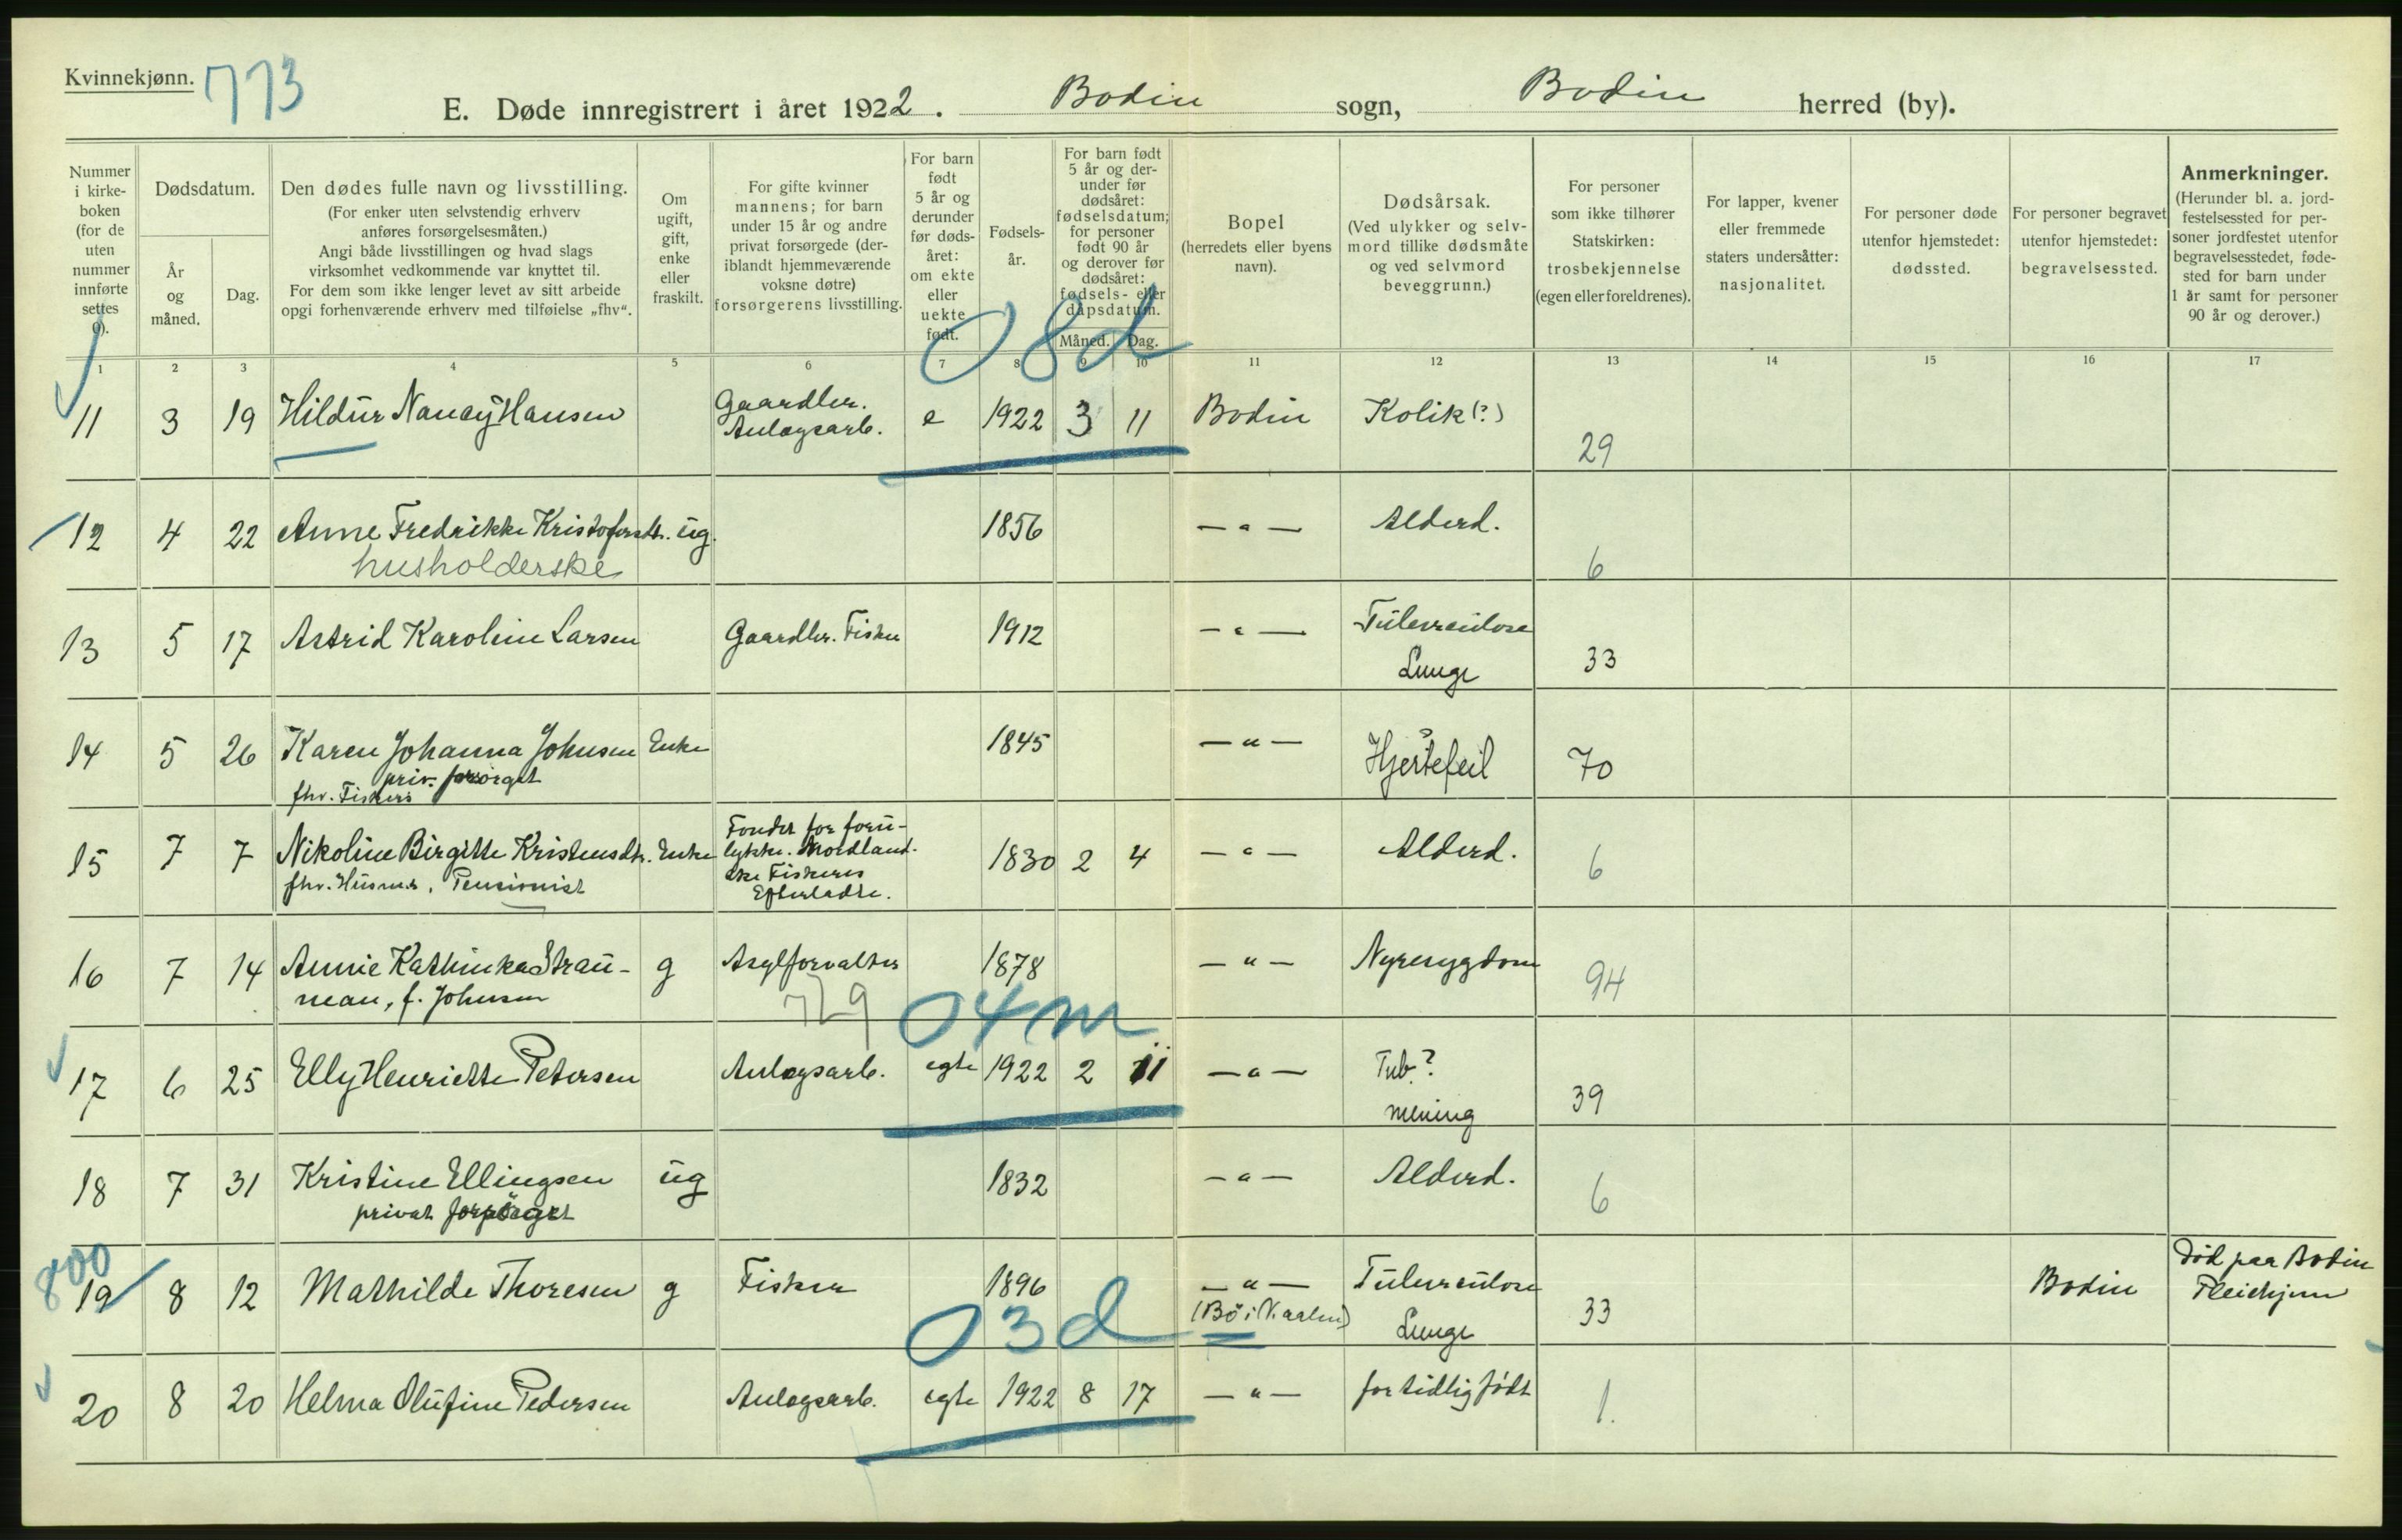 Kvinnekjønn. 773
E. Døde innregistrert i året 1922. Bodin sogn, Bodin herred (by).
Nummer i kirke-boken (for de uten nummer innførte settes 0).
Dødsdatum.
År og måned.
Dag.
Den dødes fulle navn og livsstilling.
(For enker uten selvstendig erhverv anføres forsørgelsesmåten.)
Angi både livsstillingen og hvad slags virksomhet vedkommende var knyttet til.
For dem som ikke lenger levet av sitt arbeide opgi forhenværende erhverv med tilføielse „fhv“.
Om ugift, gift, enke eller fraskilt.
For gifte kvinner mannens; for barn under 15 år og andre privat forsørgede (der-iblandt hjemmeværende voksne døtre) forsørgerens livsstilling.
For barn født 5 år og derunder før døds-året: om ekte eller uekte født.
Fødsels-år.
For barn født 5 år og der-under før dødsåret: fødselsdatum; for personer født 90 år og derover før dødsåret: fødsels- eller dåpsdatum.
Måned. Dag.
Bopel (herredets eller byens navn).
Dødsårsak.
(Ved ulykker og selv-mord tillike dødsmåte og ved selvmord beveggrunn.)
For personer som ikke tilhører Statskirken: trosbekjennelse (egen eller foreldrenes).
For lapper, kvener eller fremmede staters undersåtter: nasjonalitet.
For personer døde utenfor hjemstedet: dødssted.
For personer begravet utenfor hjemstedet: begravelsessted.
Anmerkninger.
(Herunder bl. a. jord-festelsessted for per-soner jordfestet utenfor begravelsesstedet, føde-sted for barn under 1 år samt for personer 90 år og derover.)
1 2 3 4 5 6 7 8 9 10 11 12 13 14 15 16 17
08d
11 3 19 Hildur Nancy Hansen Gaardbr. Anlægsarb. e 1922 3 11 Bodin Kolik (?) 29
12 4 22 Anne Fredrikke Kristofersdtr. ug. 1856 — " — Alderd. 6
husholderske
13 5 17 Astrid Karoline Larsen Gaardbr. Fisker 1912 — " — Tuberculose
Lunge 33
14 5 26 Karen Johanna Johnsen Enke 1845 — " — Hjertefeil 70
priv. forsørget
fhv. Fiskers
15 7 7 Nikoline Birgitte Kristensdtr. Enke Fondet for foru-
lykke. Nordland-
ske Fiskeres
Efterladte. 1830 2 4 — " — Alderd. 6
fhv. Husm.s, Pensionist
16 7 14 Annie Kathinka Strau- g Asylforvalter 1878 — " — Nyresygdom 94
mean, f. Johnsen 729
04m
17 6 25 Elly Henriette Petersen Anlægsarb. egte 1922 2 11 — " — Tub?
mening 39
18 7 31 Kristine Ellingsen ug 1832 — " — Alderd. 6
privat forsørget
800
19 8 12 Mathilde Thoresen g Fisker 1896 — " — Tuberculose Bodin Død paa Bodin
(Bø i V.aalen) Lunge 33 Pleiehjem
03d
20 8 20 Helma Olufine Pedersen Anlægsarb. egte 1922 8 17 — " — for tidlig født 1.